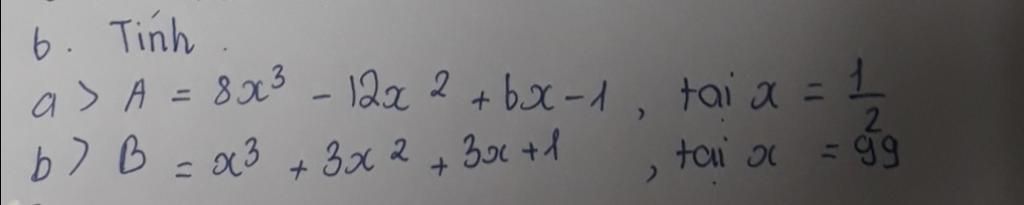 6. Tính.
a> A = 8x³ - 12x² + 6x - 1, tại x = 1/2
b> B = x³ + 3x² + 3x + 1, tại x = 99